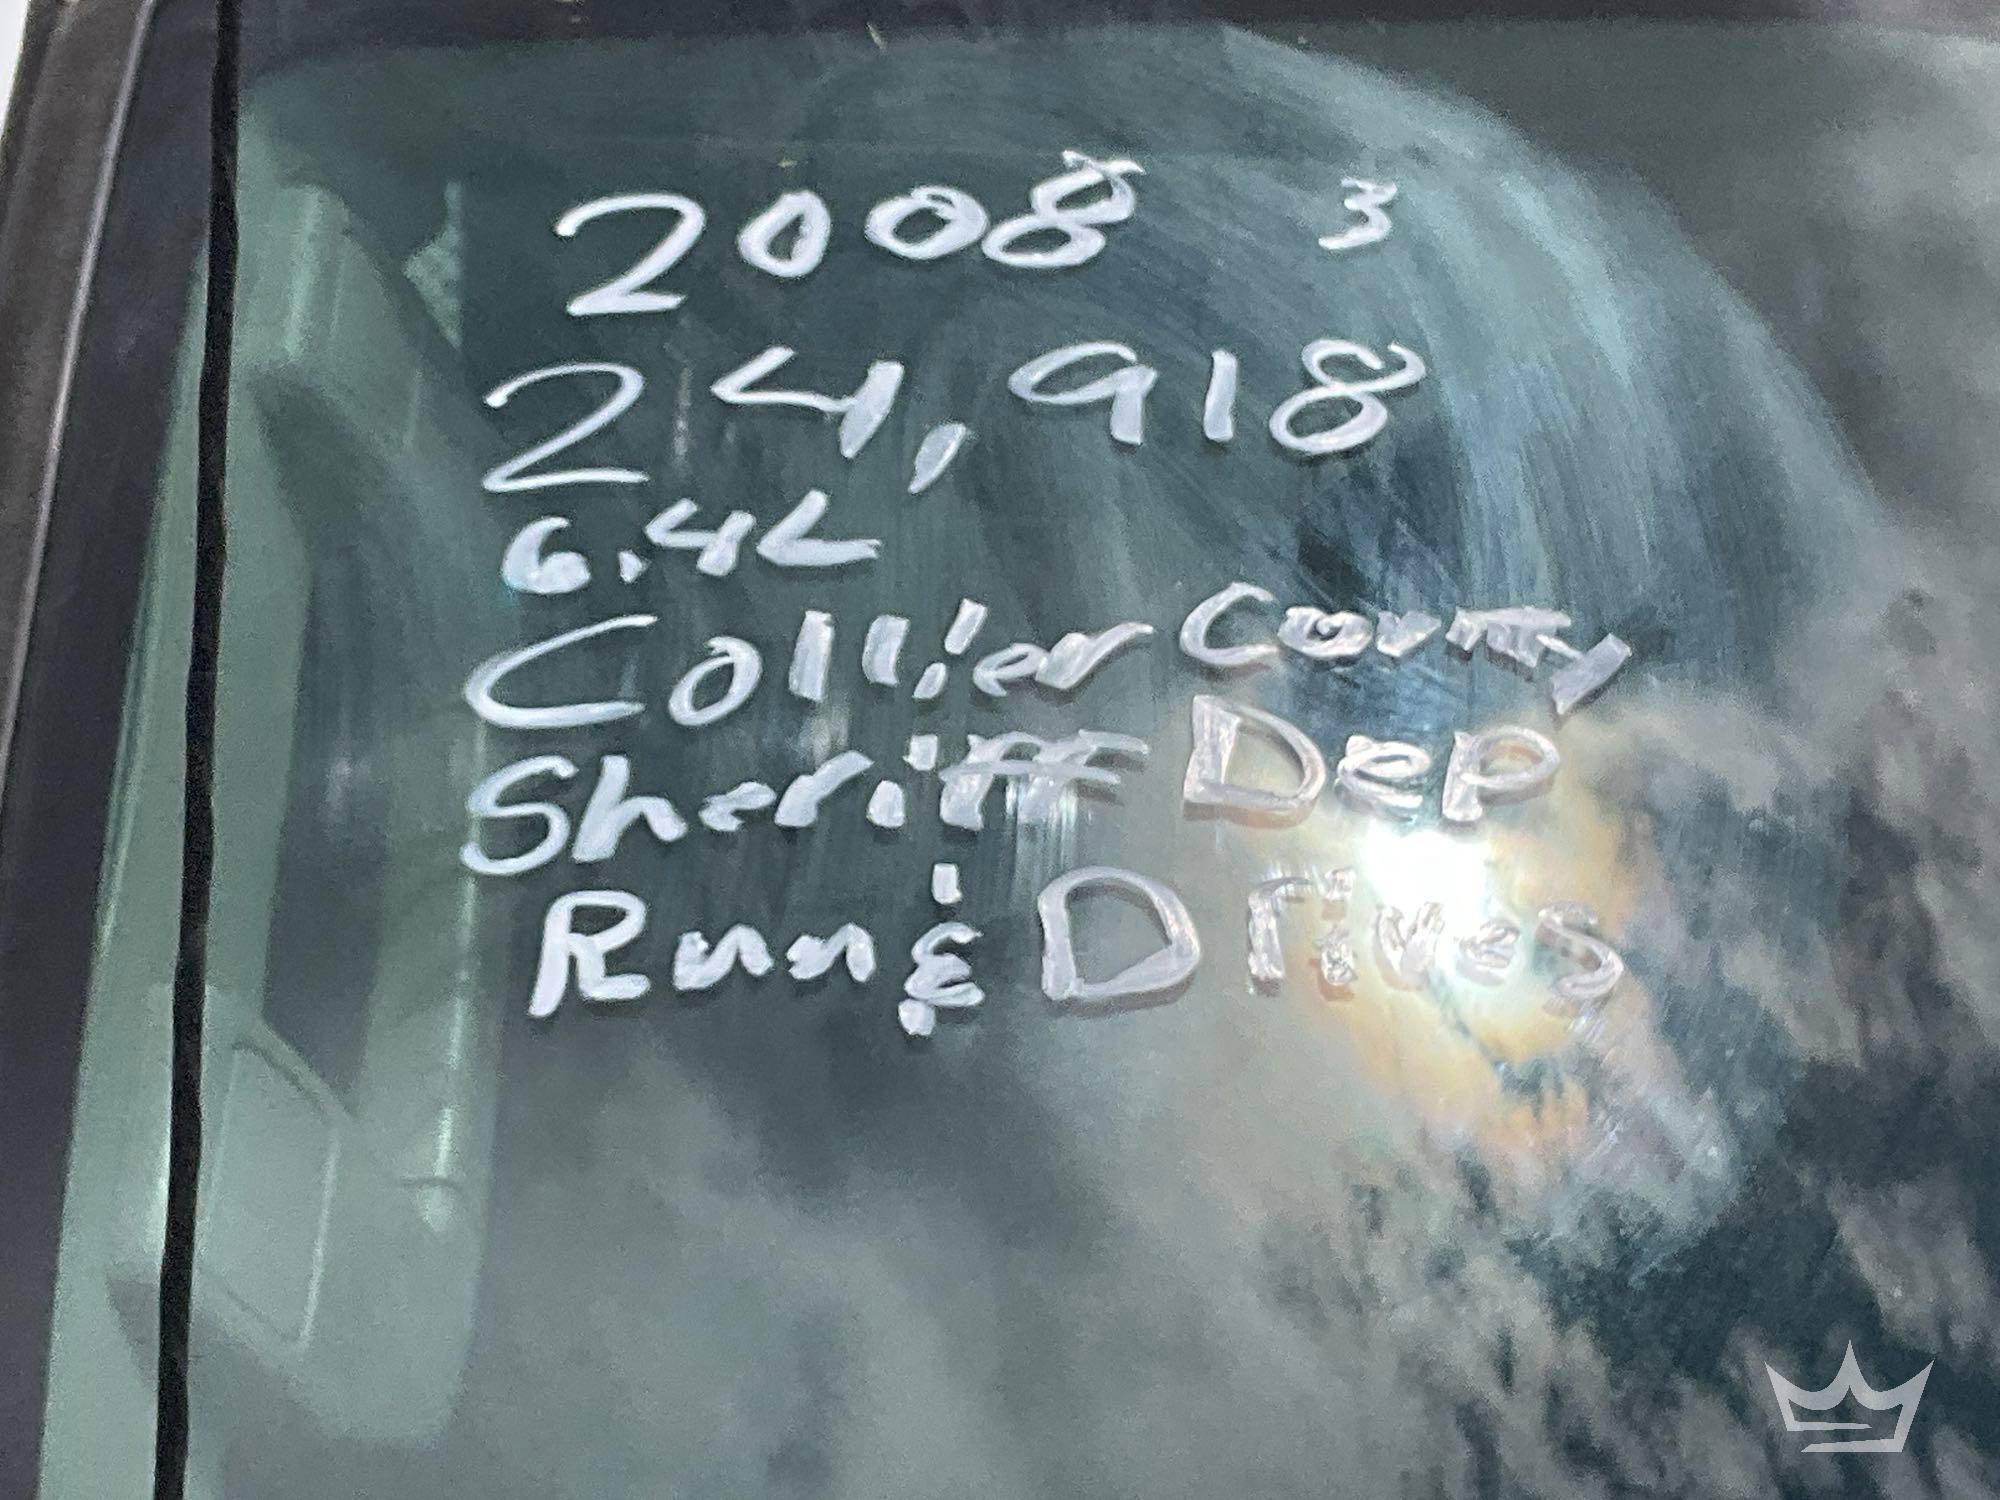 2008 3
24,918
6.4L
Collier County
Sheriff Dep
Run & Drives